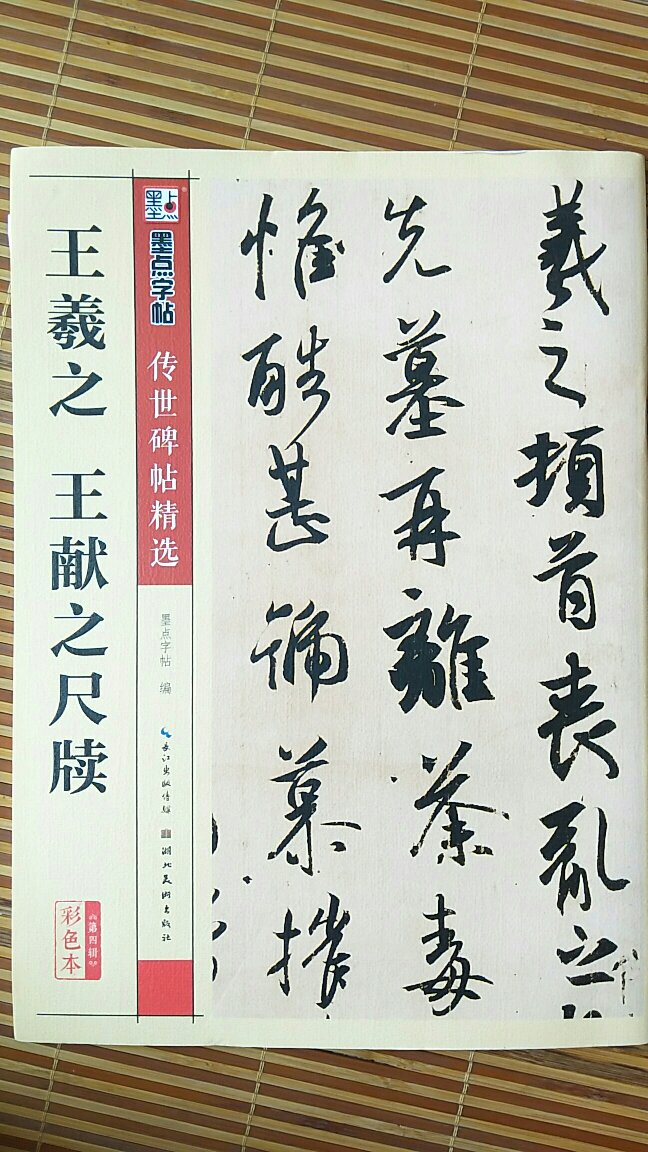 王羲之 王献之尺牍
彩色本
第四辑
墨点
墨点字帖
传世碑帖精选
墨点字帖 编
长江出版传媒
湖北美术出版社
羲之頓首喪亂之
先墓再離荼毒
惟酷甚號慕摧